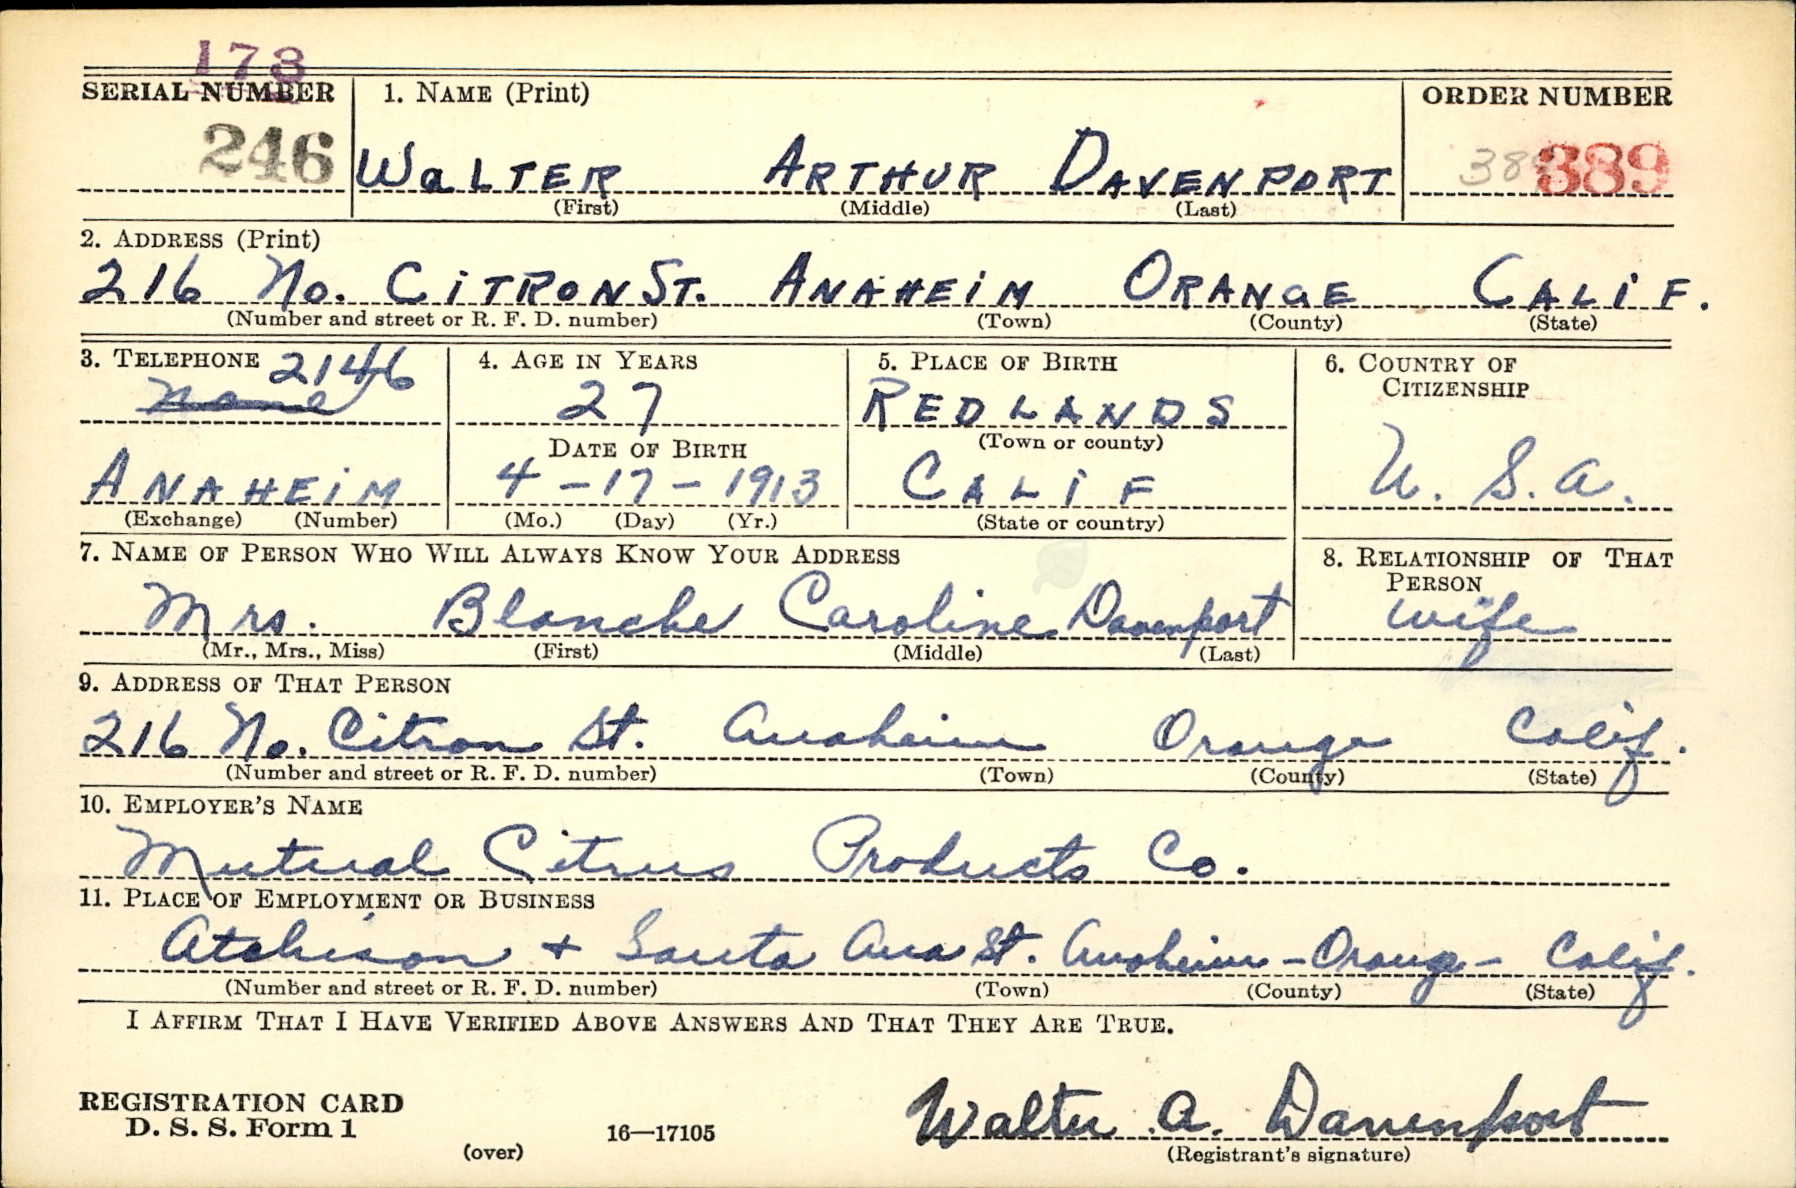 173
SERIAL NUMBER 1. NAME (Print) ORDER NUMBER
246 WaLTER ARTHUR DAVENPORT 389 389
(First) (Middle) (Last)
2. ADDRESS (Print)
216 No. CiTRON ST. ANAHEiM ORANGE CALiF.
(Number and street or R. F. D. number) (Town) (County) (State)
3. TELEPHONE 2146 4. AGE IN YEARS 5. PLACE OF BIRTH 6. COUNTRY OF CITIZENSHIP
None 27 REDLANDS
DATE OF BIRTH (Town or county)
ANAHEiM 4-17-1913 CALiF U. S. A.
(Exchange) (Number) (Mo.) (Day) (Yr.) (State or country)
7. NAME OF PERSON WHO WILL ALWAYS KNOW YOUR ADDRESS 8. RELATIONSHIP OF THAT PERSON
Mrs. Blanche Caroline Davenport wife
(Mr., Mrs., Miss) (First) (Middle) (Last)
9. ADDRESS OF THAT PERSON
216 No. Citron St. Anaheim Orange Calif.
(Number and street or R. F. D. number) (Town) (County) (State)
10. EMPLOYER'S NAME
Mutual Citrus Products Co.
11. PLACE OF EMPLOYMENT OR BUSINESS
Atchison + Santa Ana St. Anaheim - Orange - Calif.
(Number and street or R. F. D. number) (Town) (County) (State)
I AFFIRM THAT I HAVE VERIFIED ABOVE ANSWERS AND THAT THEY ARE TRUE.
REGISTRATION CARD
D. S. S. Form 1 16—17105 Walter A. Davenport
(over) (Registrant's signature)